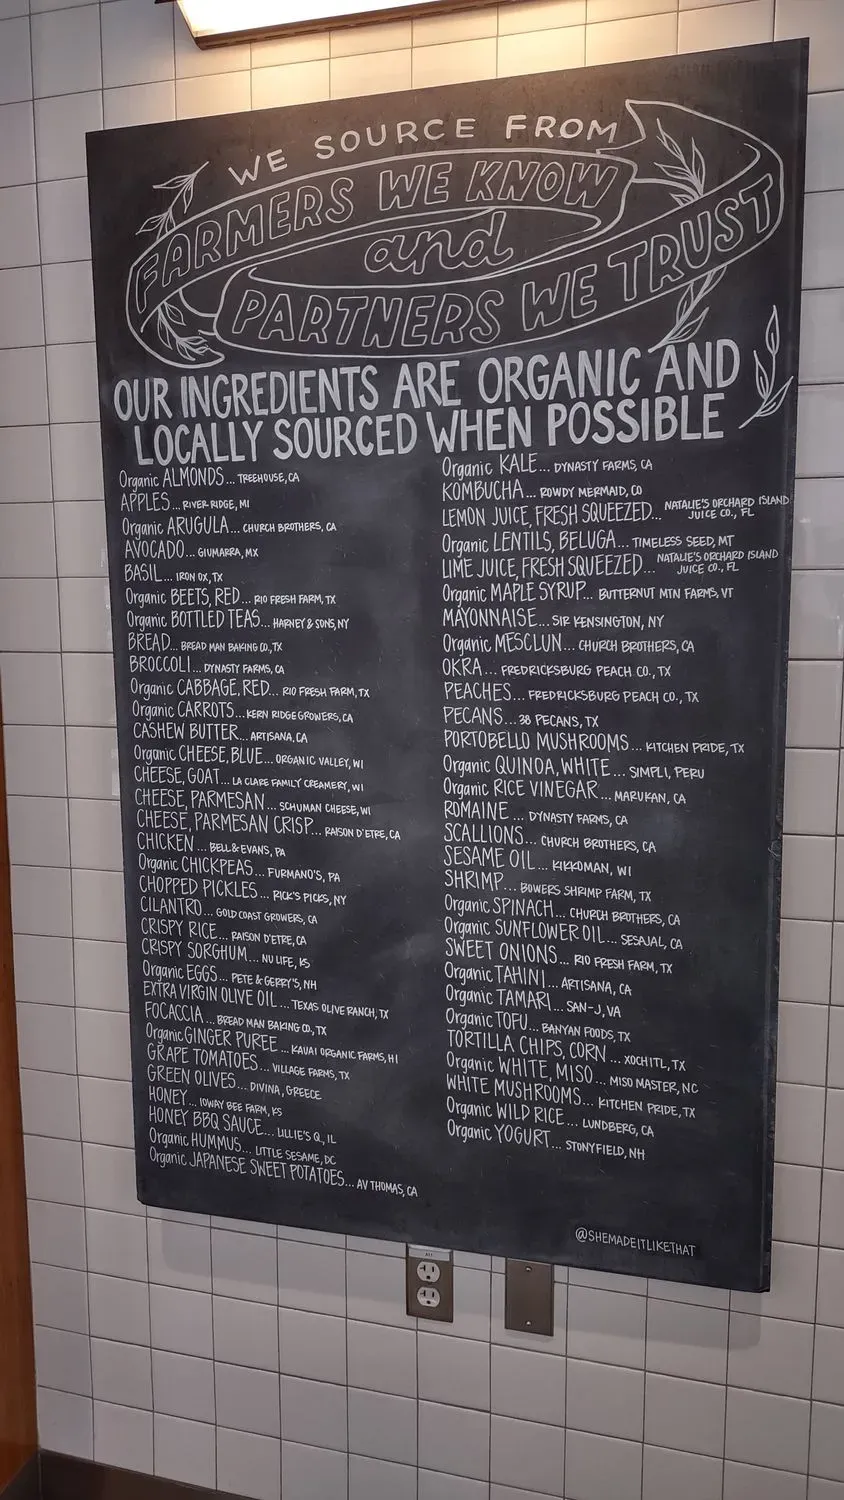 WE SOURCE FROM
FARMERS WE KNOW
and
PARTNERS WE TRUST
OUR INGREDIENTS ARE ORGANIC AND
LOCALLY SOURCED WHEN POSSIBLE
Organic ALMONDS... TREEHOUSE, CA
APPLES... RIVER RIDGE, MI
Organic ARUGULA... CHURCH BROTHERS, CA
AVOCADO... GIUMARRA, MX
BASIL... IRON OX, TX
Organic BEETS, RED... RIO FRESH FARM, TX
Organic BOTTLED TEAS... HARNEY & SONS, NY
BREAD... BREAD MAN BAKING CO, TX
BROCCOLI... DYNASTY FARMS, CA
Organic CABBAGE, RED... RIO FRESH FARM, TX
Organic CARROTS... KERN RIDGE GROWERS, CA
CASHEW BUTTER... ARTISANA, CA
Organic CHEESE, BLUE... ORGANIC VALLEY, WI
CHEESE, GOAT... LA CLARE FAMILY CREAMERY, WI
CHEESE, PARMESAN... SCHUMAN CHEESE, WI
CHEESE, PARMESAN CRISP... RAISON D'ETRE, CA
CHICKEN... BELL & EVANS, PA
Organic CHICKPEAS... FURMANO'S, PA
CHOPPED PICKLES... RICK'S PICKS, NY
CILANTRO... GOLD COAST GROWERS, CA
CRISPY RICE... RAISON D'ETRE, CA
CRISPY SORGHUM... NU LIFE, KS
Organic EGGS... PETE & GERRY'S, NH
EXTRA VIRGIN OLIVE OIL... TEXAS OLIVE RANCH, TX
FOCACCIA... BREAD MAN BAKING CO, TX
Organic GINGER PUREE... KAUAI ORGANIC FARMS, HI
GRAPE TOMATOES... VILLAGE FARMS, TX
GREEN OLIVES... DIVINA, GREECE
HONEY... IOWAY BEE FARM, KS
HONEY BBQ SAUCE... LILLIE'S Q, IL
Organic HUMMUS... LITTLE SESAME, DC
Organic JAPANESE SWEET POTATOES... AV THOMAS, CA
Organic KALE... DYNASTY FARMS, CA
KOMBUCHA... ROWDY MERMAID, CO
LEMON JUICE, FRESH SQUEEZED... NATALIE'S ORCHARD ISLAND
JUICE CO., FL
Organic LENTILS, BELUGA... TIMELESS SEED, MT
LIME JUICE, FRESH SQUEEZED... NATALIE'S ORCHARD ISLAND
JUICE CO., FL
Organic MAPLE SYRUP... BUTTERNUT MTN FARMS, VT
MAYONNAISE... SIR KENSINGTON, NY
Organic MESCLUN... CHURCH BROTHERS, CA
OKRA... FREDRICKSBURG PEACH CO., TX
PEACHES... FREDRICKSBURG PEACH CO., TX
PECANS... 38 PECANS, TX
PORTOBELLO MUSHROOMS... KITCHEN PRIDE, TX
Organic QUINOA, WHITE... SIMPLI, PERU
Organic RICE VINEGAR... MARUKAN, CA
ROMAINE... DYNASTY FARMS, CA
SCALLIONS... CHURCH BROTHERS, CA
SESAME OIL... KIKKOMAN, WI
SHRIMP... BOWERS SHRIMP FARM, TX
Organic SPINACH... CHURCH BROTHERS, CA
Organic SUNFLOWER OIL... SESAJAL, CA
SWEET ONIONS... RIO FRESH FARM, TX
Organic TAHINI... ARTISANA, CA
Organic TAMARI... SAN-J, VA
Organic TOFU... BANYAN FOODS, TX
TORTILLA CHIPS, CORN... XOCHITL, TX
Organic WHITE, MISO... MISO MASTER, NC
WHITE MUSHROOMS... KITCHEN PRIDE, TX
Organic WILD RICE... LUNDBERG, CA
Organic YOGURT... STONYFIELD, NH
@SHEMADEITLIKETHAT